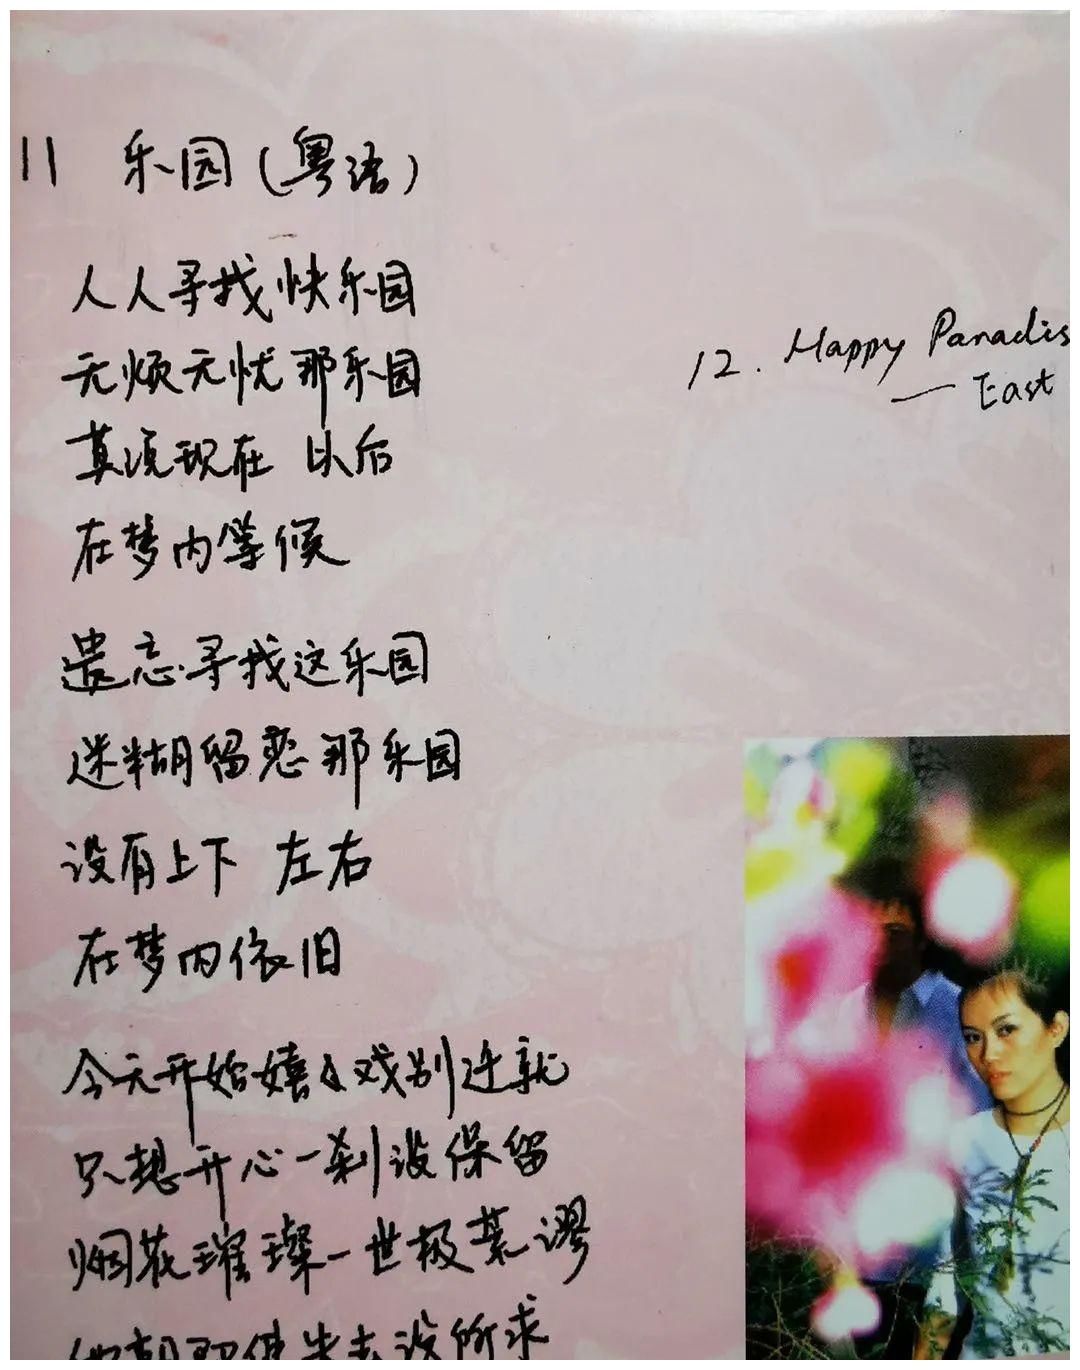 11 乐园(粤语)
人人寻找快乐园
无烦无忧那乐园
莫须现在 以后
在梦内等候
遗忘寻找这乐园
迷糊留恋那乐园
没有上下 左右
在梦内依旧
今天开始嬉々戏别迁就
只想开心一刹没保留
烟花璀璨一世极荒谬
他朝即使失去没所求
12. Happy Paradis
— East